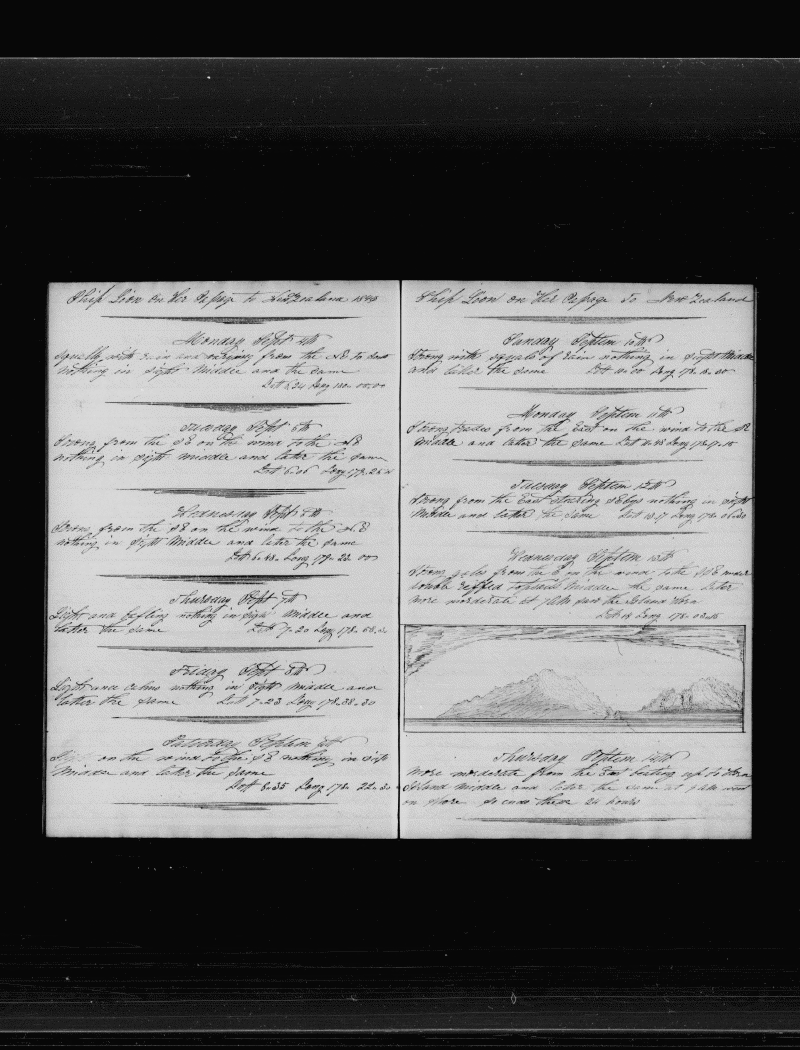 Ship Lion on Her Pasage to New Zealand 1843
Monday Sept 4th
Squally with rain and varying from the NE to
nothing in sight Middle and the same
Latt Long 180-00.00
Tuesday Sept 5th
Strong from the SE on the wind to the NE
nothing in sight middle and later the same
Latt 6.06 Long 179.26
Wednesday Sept 6th
Strong from the SE on the wind to the NE
nothing in sight Middle and later the same
Latt 6.43 Long 179.22.00
Thursday Sept 7th
Light and baffling nothing in sight Middle and
later the same Latt 7.20 Long 178.
Friday Sept 8th
Light and calms nothing in sight middle and
later the same Latt 7.23 Long 178.38.30
Saturday Septem 9th
on the wind to the SE nothing in sight
Middle and later the same
Latt 8.35 Long 178.22.30
Ship Lion on Her Pasage To New Zealand
Sunday Septem 10th
Strong with squals of Rain nothing in sight Middle
and later the same Latt 10.00 Long 178.
Monday Septem 11th
Strong trades from the East on the wind to the
Middle and later the same Latt Long 178.
Tuesday Septem 12th
Strong from the East steering nothing in sight
Middle and latter the same Latt 13.7 Long 178.
Wednesday Septem 13th
Strong gales from the E on the wind to the under
double reffed topsails Middle the same Later
more morderate at 7 AM saw the Island Horn
Latt 14 Long 178.03.
Thursday Septem 14th
More morderate from the East beating up to Horn
Island middle and later the same at 9 AM went
on shore so ends these 24 hours